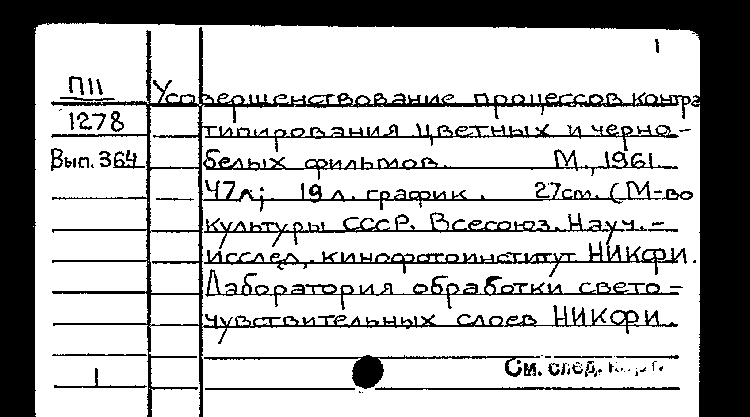 1
П11 Усовершенствование процессов контра
1278 типирования цветных и черно-
Вып. 364 белых фильмов. М., 1961.
47л; 19 л. график. 27см. (М-во
культуры СССР. Всесоюз. Науч.-
исслед. кинофотоинститут НИКФИ.
Лаборатория обработки свето-
чувствительных слоев НИКФИ.
См. след.
1